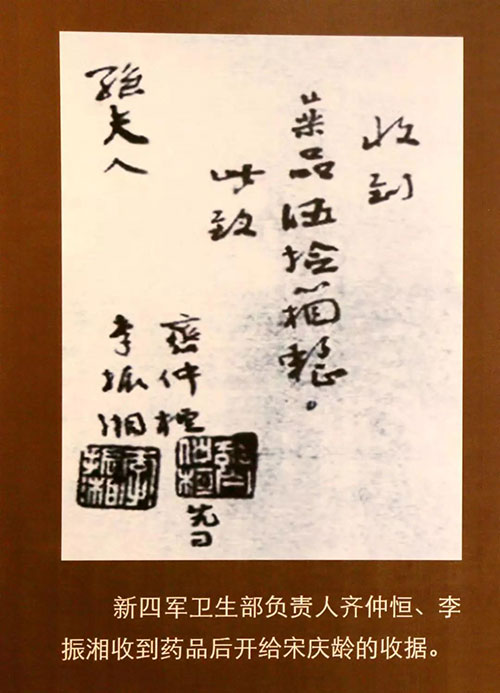 收到
藥品伍拾箱整。
此致
孫夫人
齊仲桓
李振湘
李振湘
新四军卫生部负责人齐仲恒、李
振湘收到药品后开给宋庆龄的收据。